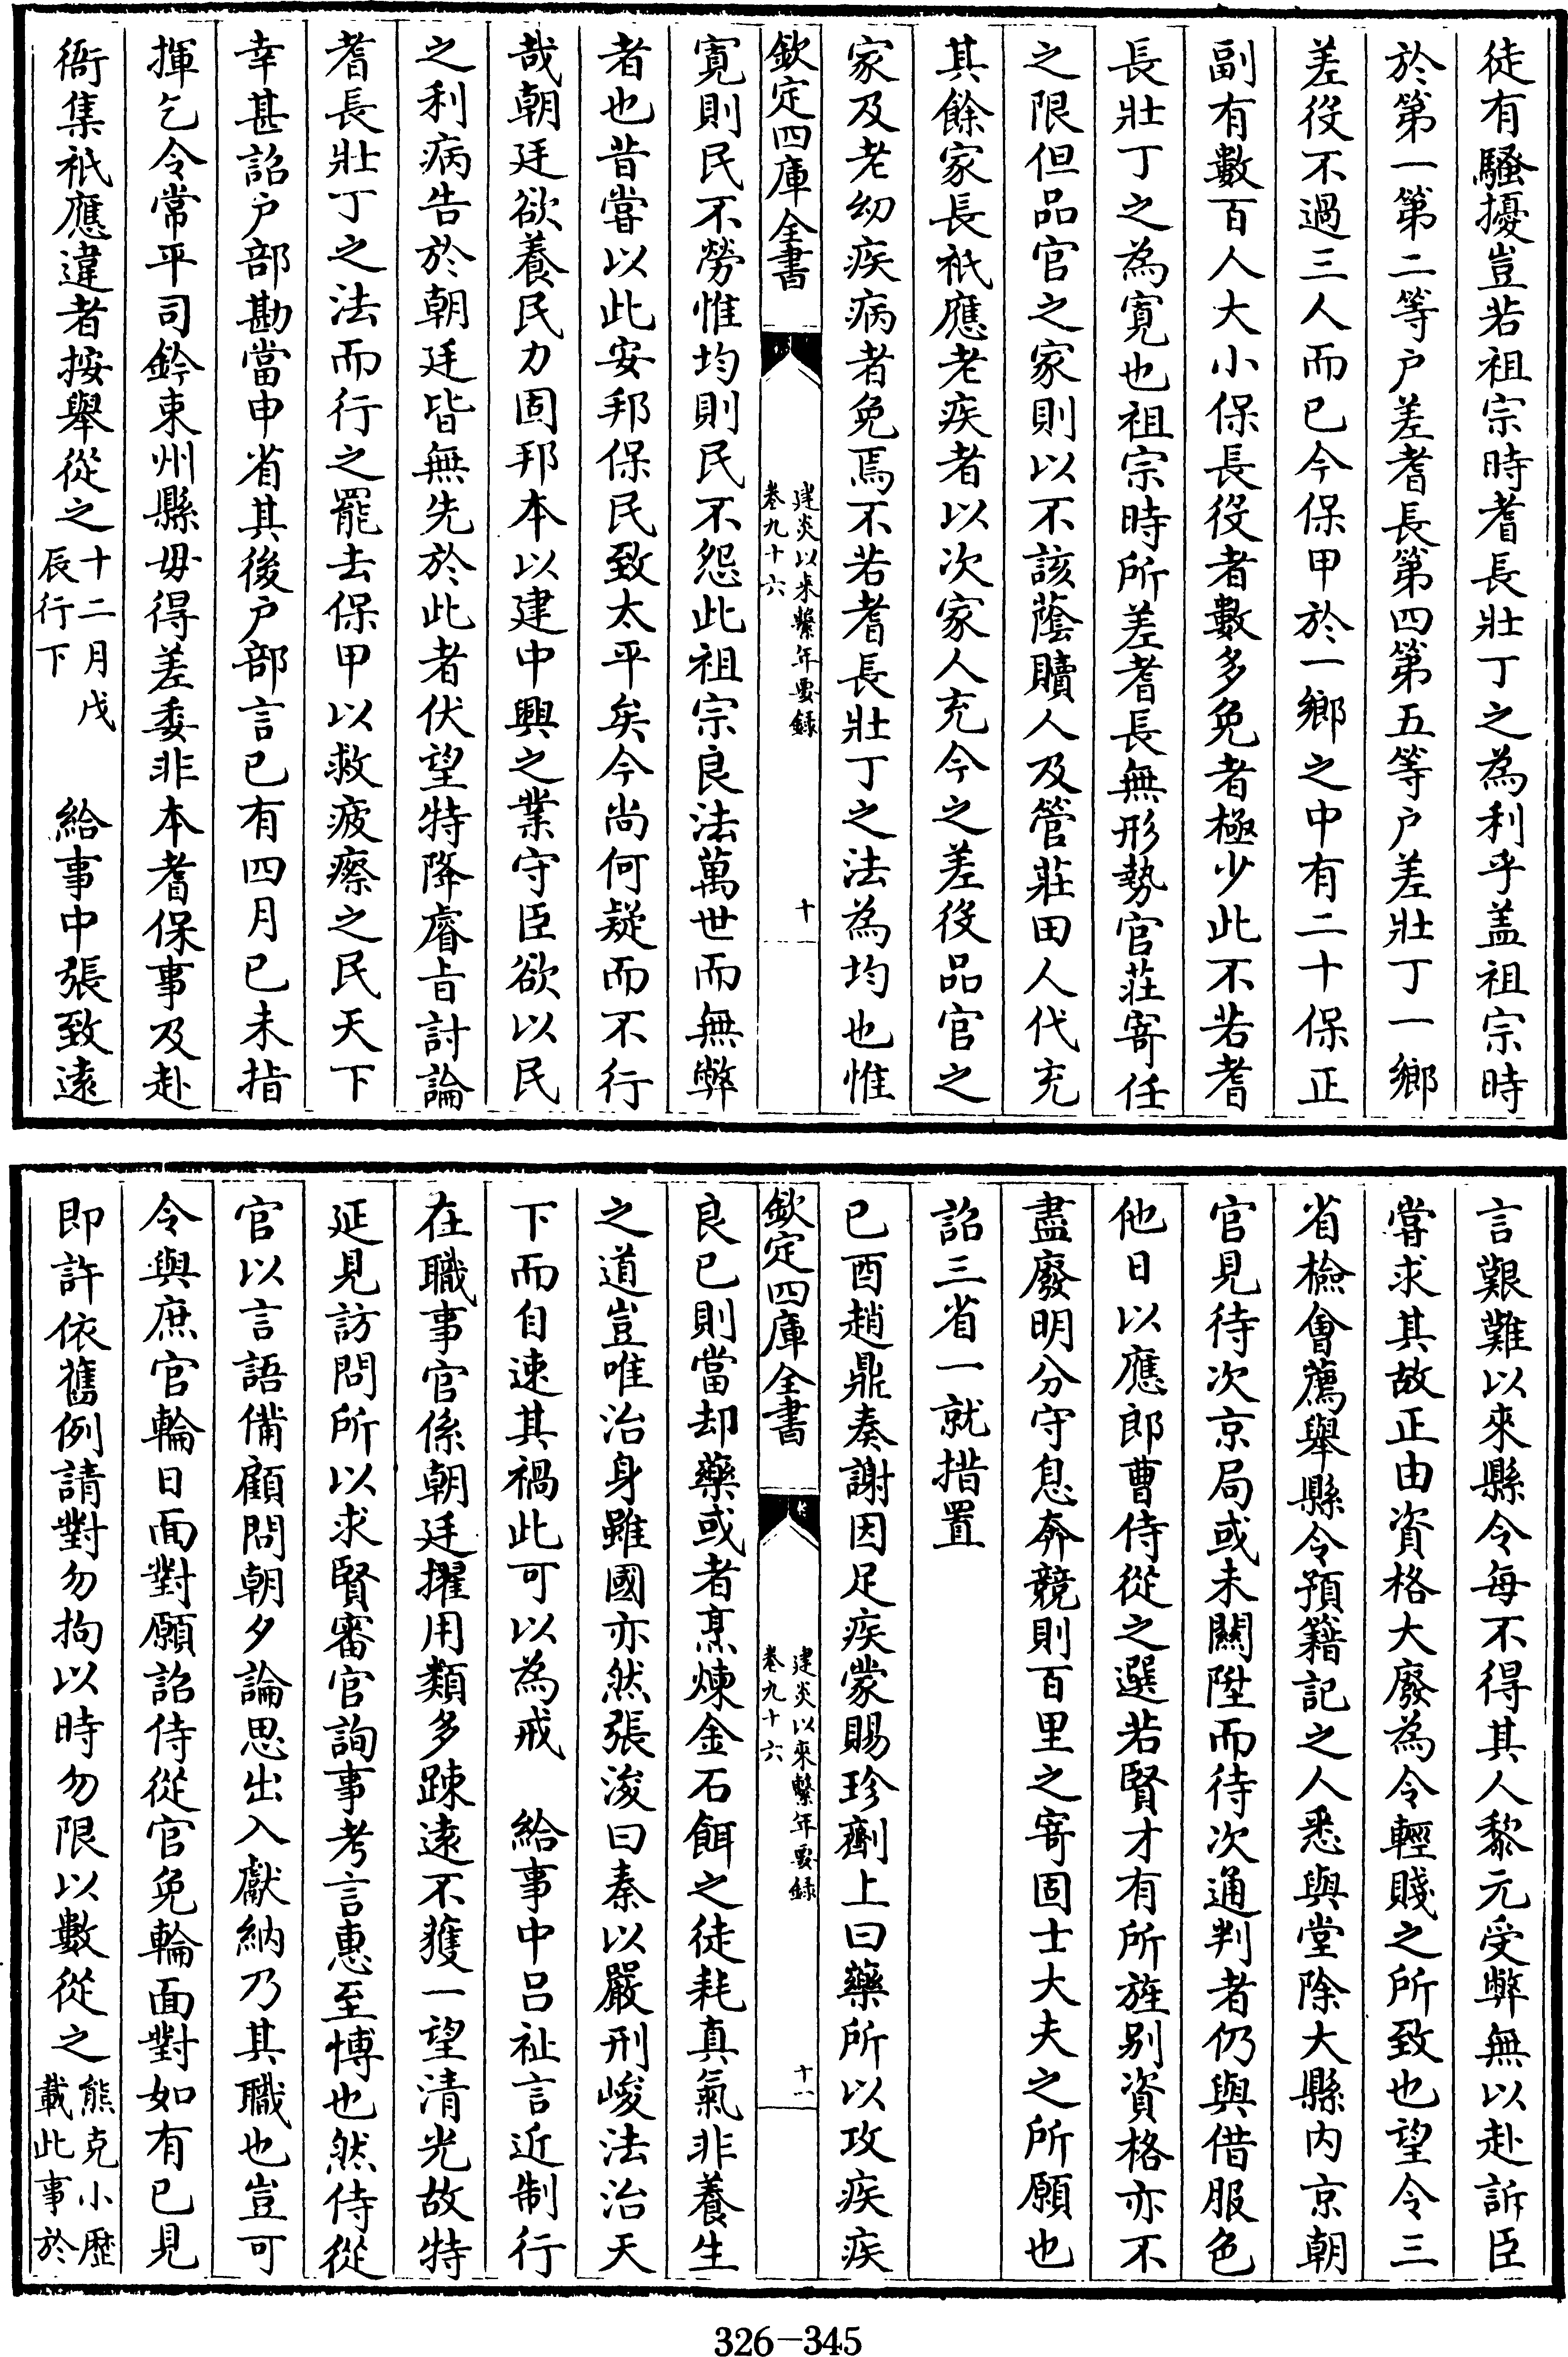 徒有騷擾豈若祖宗時耆長壯丁之為利乎盖祖宗時
於第一第二等户差耆長第四第五等户差壯丁一鄉
差役不過三人而已今保甲於一鄉之中有二十保正
副有數百人大小保長役者數多免者極少此不若耆
長壯丁之為寛也祖宗時所差耆長無形勢官莊寄任
之限但品官之家則以不該蔭贖人及管莊田人代充
其餘家長祇應老疾者以次家人充今之差役品官之
家及老幼疾病者免焉不若耆長壯丁之法為均也惟
欽定四庫全書
建炎以来繫年要録
卷九十六
十
寛則民不勞惟均則民不怨此祖宗良法萬世而無弊
者也昔嘗以此安邦保民致太平矣今尚何疑而不行
哉朝廷欲養民力固邦本以建中興之業守臣欲以民
之利病告於朝廷皆無先於此者伏望特降睿㫖討論
耆長壯丁之法而行之罷去保甲以救疲瘵之民天下
幸甚詔户部勘當申省其後户部言已有四月已未指
揮乞令常平司鈐束州縣毋得差委非本耆保事及赴
衙集祇應違者按舉從之十二月戊
辰行下
給事中張致遠
言艱難以來縣令每不得其人黎元受弊無以赴訴臣
嘗求其故正由資格大廢為令輕賤之所致也望令三
省檢會薦舉縣令預籍記之人悉與堂除大縣内京朝
官見待次京局或未關陞而待次通判者仍與借服色
他日以應郎曹侍從之選若賢才有所旌别資格亦不
盡廢明分守息奔競則百里之寄固士大夫之所願也
詔三省一就措置
已酉趙鼎奏謝因足疾蒙賜珍劑上曰藥所以攻疾疾
欽定四庫全書
建炎以來繫年要録
卷九十六
十一
良已則當却藥或者烹煉金石餌之徒耗真氣非養生
之道豈唯治身雖國亦然張浚曰秦以嚴刑峻法治天
下而自速其禍此可以為戒　給事中吕祉言近制行
在職事官係朝廷擢用類多踈逺不獲一望清光故特
延見訪問所以求賢審官詢事考言惠至博也然侍從
官以言語備顧問朝夕論思出入獻納乃其職也豈可
令與庶官輪日面對願詔侍從官免輪面對如有已見
即許依舊例請對勿拘以時勿限以數從之熊克小歷
載此事於
326-345